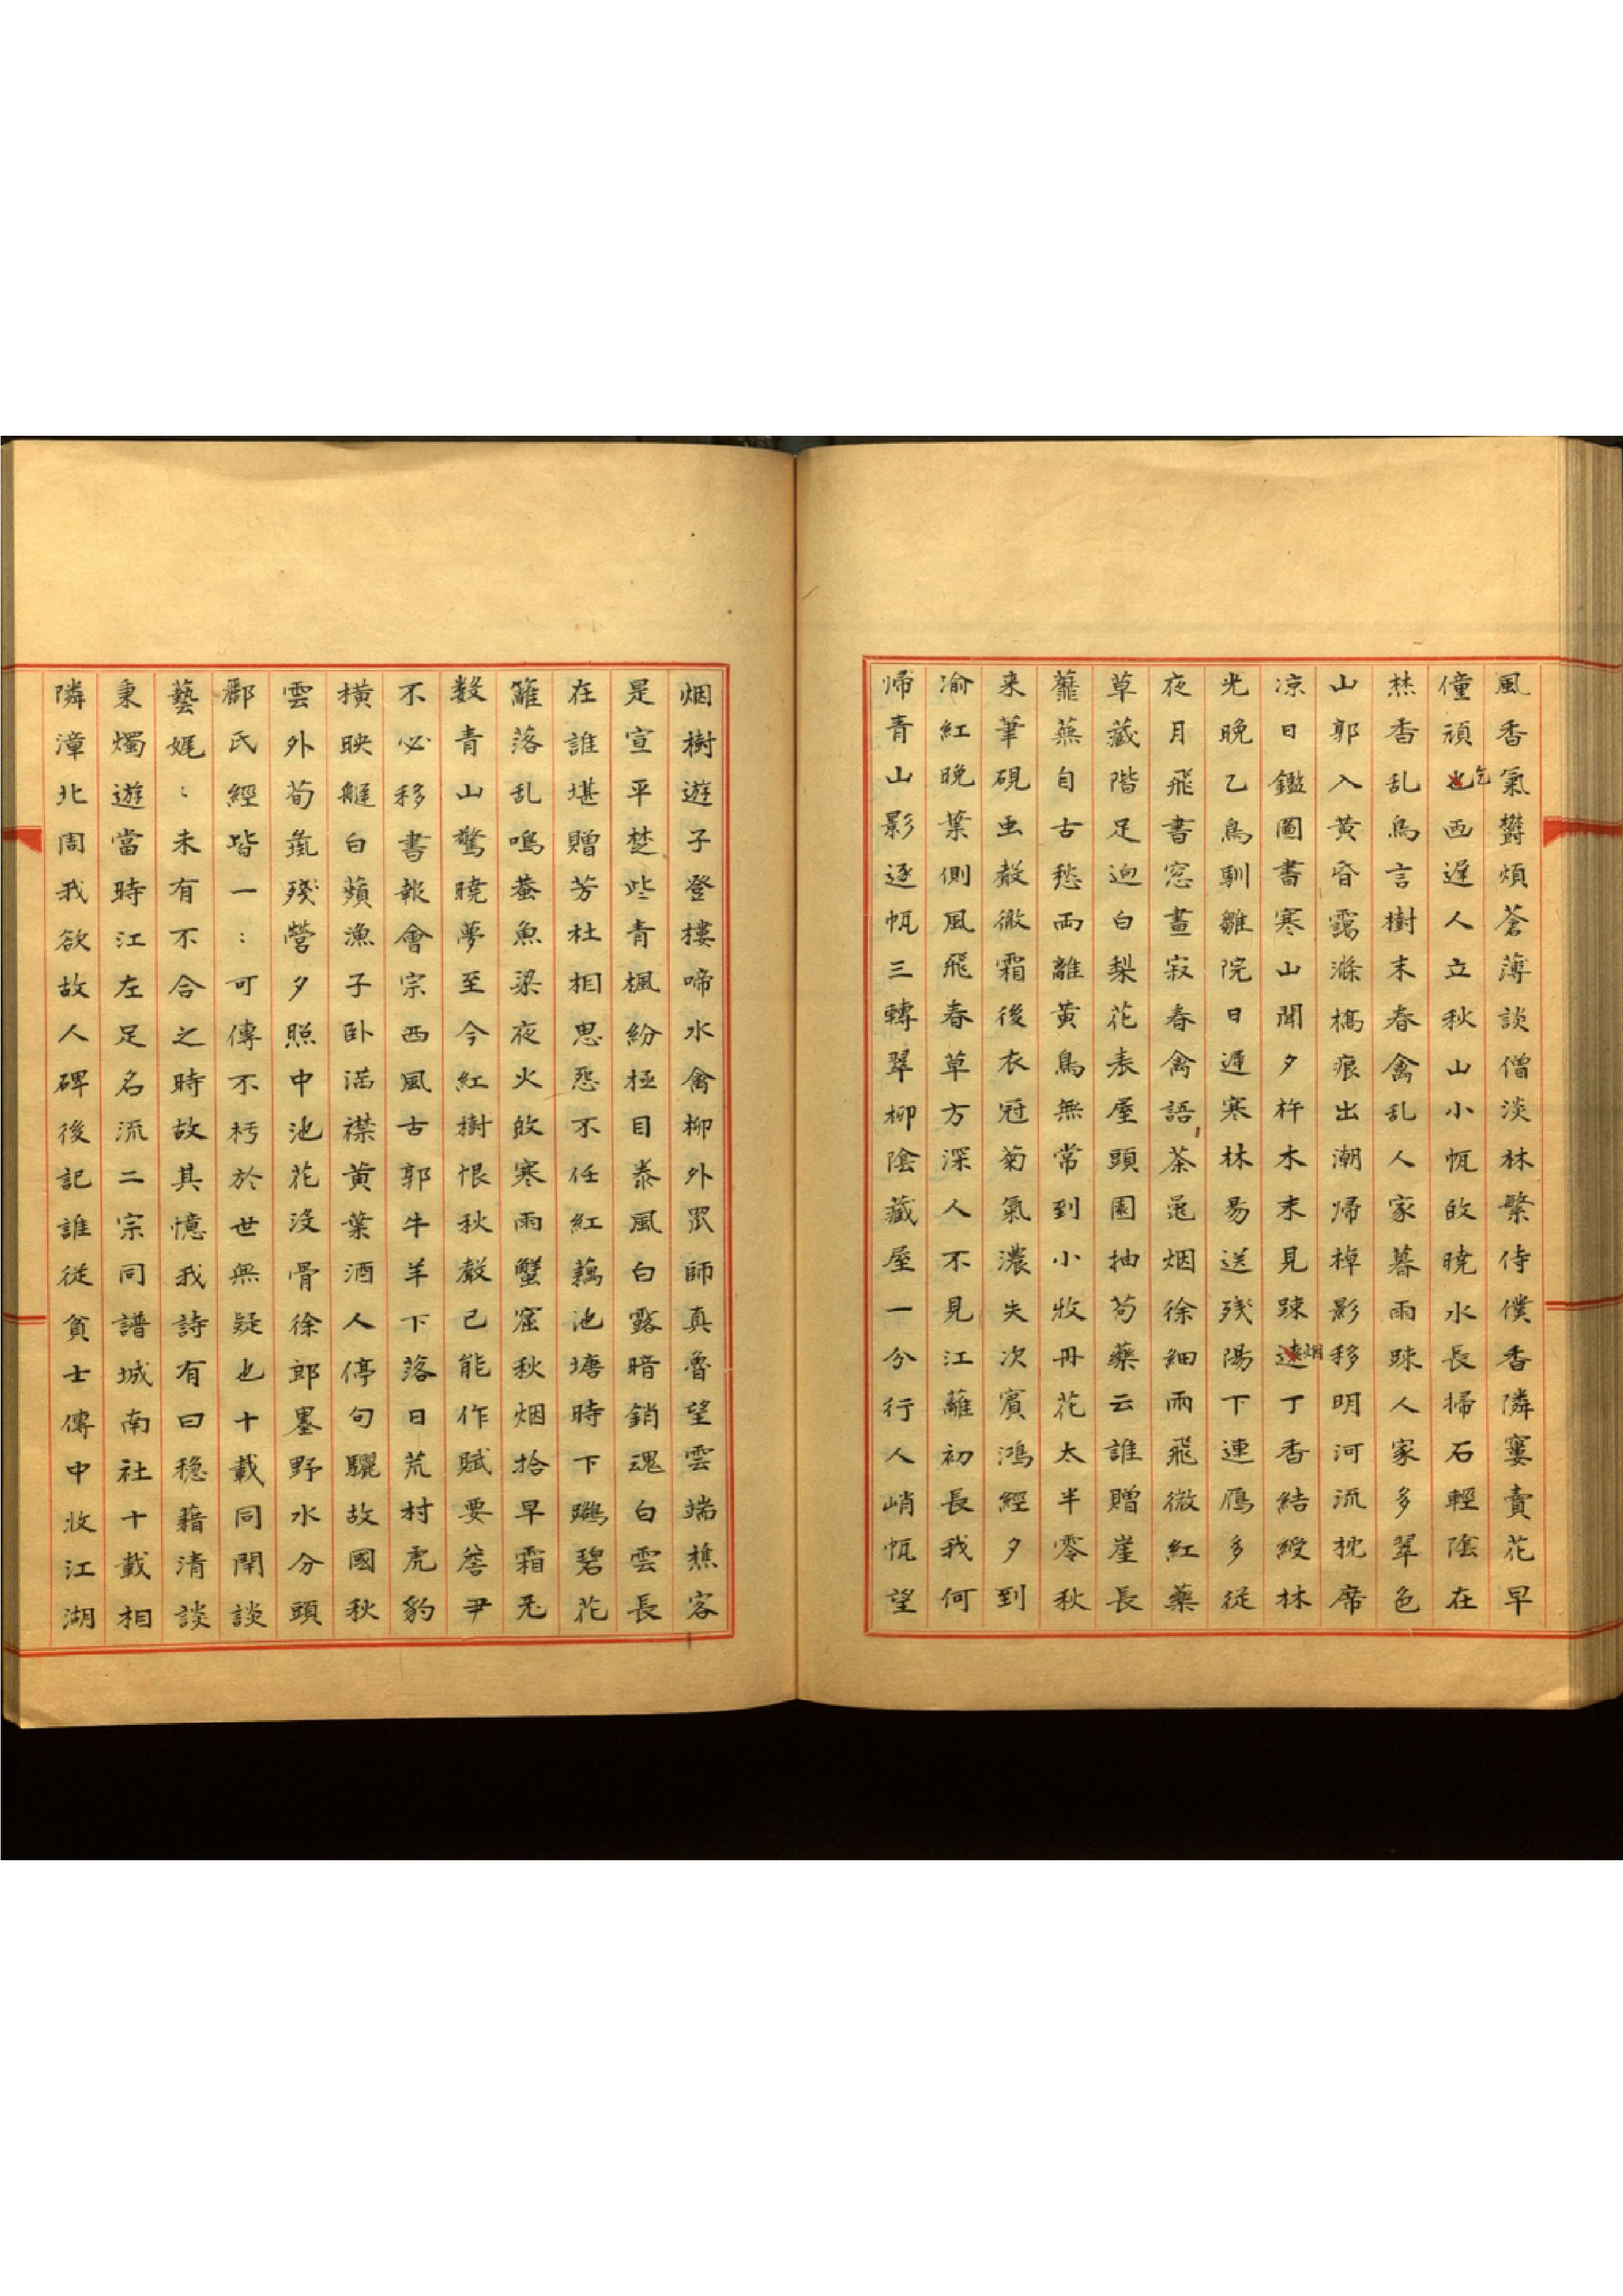 風香氣欝煩蒼薄談僧淡林繁侍僕香隣窶賣花早
僮頑乞西遲人立秋山小帆𢻫曉水長掃石輕陰在
林香乱鳥言樹末春禽乱人家暮雨踈人家多翠色
山郭入黄昏靄滌橋痕出潮帰棹影移明河流枕席
凉日鑑圖書寒山聞夕杵木末見踈烟丁香結綬林
光晚乙鳥馴雛院日遲寒林易送残陽下連鴈多従
夜月飛書窓晝寂春禽語茶黽烟徐細雨飛微紅藥
草藏階足迎白梨花表屋頭園抽芍藥云誰贈崖長
蘼蕪自古愁两離黄鳥無常到小牧丹花太半零秋
来筆硯虫聲微霜後衣冠菊氣濃失次賓鴻經夕到
渝紅晚葉側風飛春草方深人不見江蘺初長我何
帰青山影逐帆三轉翠柳陰藏屋一分行人峭帆望
烟樹遊子登樓啼水禽柳外罛師真魯望雲端樵客
是宣平楚些青楓紛極目泰風白露暗銷魂白雲長
在誰堪贈芳杜相思恐不任紅藕池塘時下鷗碧花
籬落乱鳴蛬魚梁夜火𢻫寒雨蟹窟秋烟拾早霜无
数青山驚曉夢至今紅樹恨秋聲已能作賦要詹尹
不必移書報會宗西風古郭牛羊下落日荒村虎豹
横映艇白蘋漁子卧満襟黄葉酒人停句驪故國秋
雲外荀彘殘營夕照中池花没骨徐郎墨野水分頭
酈氏經皆一：可傳不朽於世無疑也十載同聞談
藝娓：未有不合之時故其憶我詩有曰穏藉清談
秉燭遊當時江左足名流二宗同譜城南社十載相
隣漳北周我欲故人碑後記誰従貧士傳中收江湖